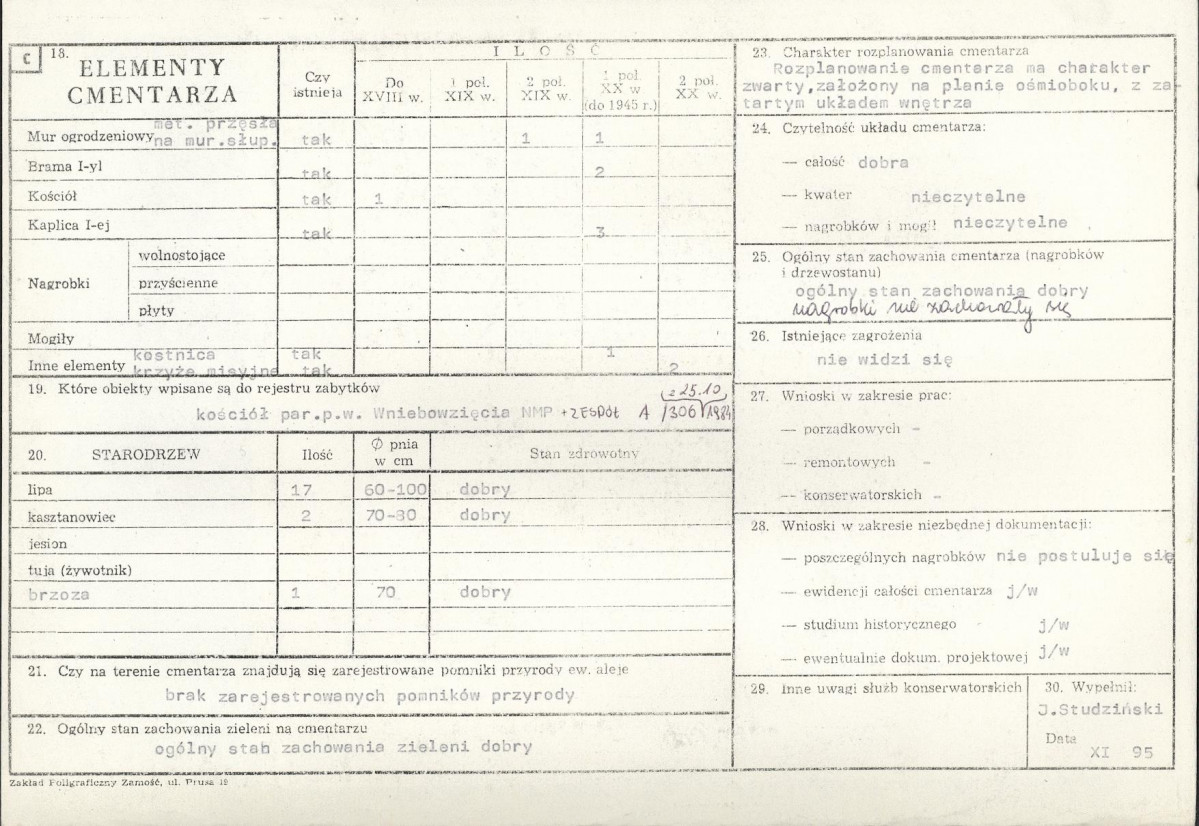 C 18.
ELEMENTY
CMENTARZA
Czy
istnieją
ILOŚĆ
Do
XVIII w.
1 poł.
XIX w.
2 poł.
XIX w.
1 poł.
XX w
(do 1945 r.)
2 poł.
XX w.
met. przęsła
Mur ogrodzeniowy na mur.słup. tak 1 1
Brama I-yl tak 2
Kościół tak 1
Kaplica I-ej tak 3
Nagrobki
wolnostojące
przyścienne
płyty
Mogiły
kostnica tak 1
Inne elementy krzyże misyjne tak 2
19. Które obiekty wpisane są do rejestru zabytków
z 25.10
kościół par.p.w. Wniebowzięcia NMP + ZESPÓŁ A /306/1984
20. STARODRZEW Ilość Ø pnia
w cm Stan zdrowotny
lipa 17 60-100 dobry
kasztanowiec 2 70-80 dobry
jesion
tuja (żywotnik)
brzoza 1 70 dobry
21. Czy na terenie cmentarza znajdują się zarejestrowane pomniki przyrody ew. aleje
brak zarejestrowanych pomników przyrody
22. Ogólny stan zachowania zieleni na cmentarzu
ogólny stab zachowania zieleni dobry
23. Charakter rozplanowania cmentarza
Rozplanowanie cmentarza ma charakter
zwarty,założony na planie ośmioboku, z za-
tartym układem wnętrza
24. Czytelność układu cmentarza:
— całość dobra
— kwater nieczytelne
— nagrobków i mogił nieczytelne
25. Ogólny stan zachowania cmentarza (nagrobków
i drzewostanu)
ogólny stan zachowania dobry
nagrobki nie zachowały się
26. Istniejące zagrożenia
nie widzi się
27. Wnioski w zakresie prac:
— porządkowych -
— remontowych -
— konserwatorskich -
28. Wnioski w zakresie niezbędnej dokumentacji:
— poszczególnych nagrobków nie postuluje się
— ewidencji całości cmentarza j/w
— studium historycznego j/w
— ewentualnie dokum. projektowej j/w
29. Inne uwagi służb konserwatorskich
30. Wypełnił:
J.Studziński
Data
XI 95
Zakład Poligraficzny Zamość, ul. Prusa 19